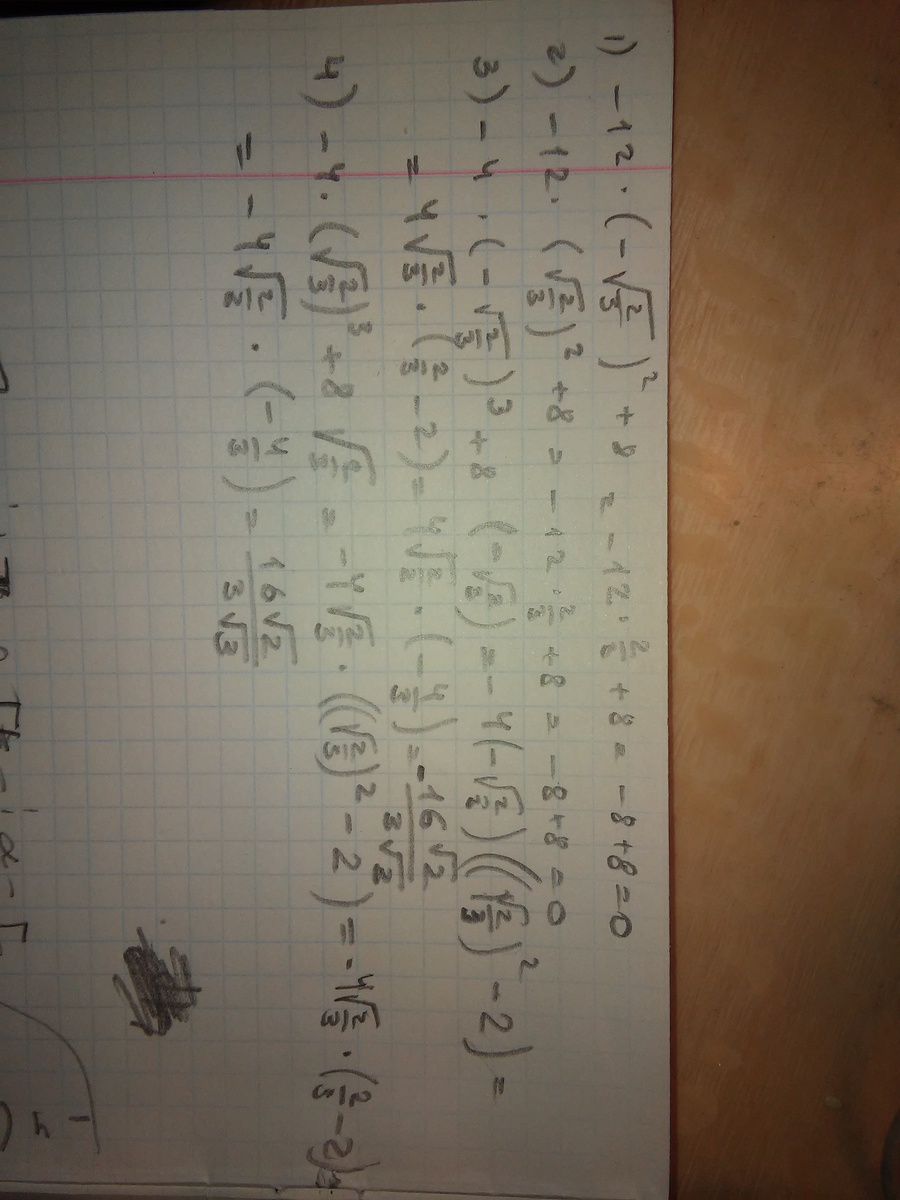 1) -12 · (-√(2/3))² + 8 = -12 · 2/3 + 8 = -8+8=0
2) -12 · (√(2/3))² +8 = -12 · 2/3 +8 = -8+8 =0
3) -4 · (-√(2/3))³ +8 (-√(2/3)) = -4(-√(2/3))((√(2/3))² -2) =
= 4√(2/3) · (2/3 -2) = 4√(2/3) · (-4/3) = -16√2/3√3
4) -4 · (√(2/3))³ +8√(2/3) = -4√(2/3) · ((√(2/3))² -2) = -4√(2/3) · (2/3 -2) =
= -4√(2/3) · (-4/3) = 16√2/3√3